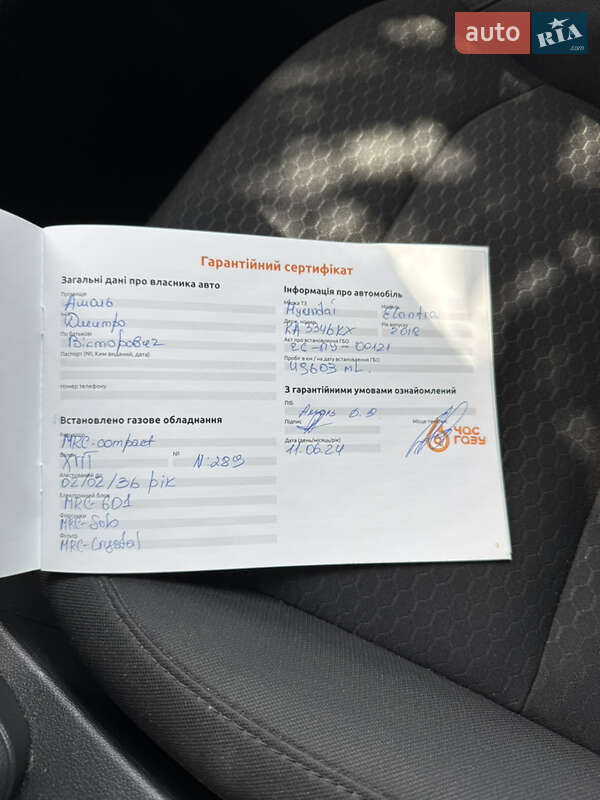 auto RIA .com
Гарантійний сертифікат
Загальні дані про власника авто
Прізвище
Дмитро
По батькові
Вікторович
Паспорт (№, Ким виданий, дата)
Номер телефону
Встановлено газове обладнання
MRC-compact
№ N:289
02/02/36 рік
Електронний блок
MRC-601
MRC-Solo
Фільтр
MRC-Crystal
Інформація про автомобіль
Марка ТЗ
Hyundai
Модель
Elantra
Рік випуску
2018
KA 5346KX
Акт про встановлення ГБО
Пробіг в км / на дату встановлення ГБО
49603 mL.
З гарантійними умовами ознайомлений
ПІБ
Підпис
Дата (день/місяць/рік)
11.06.24
Місце печатки
ЧАС ГАЗУ